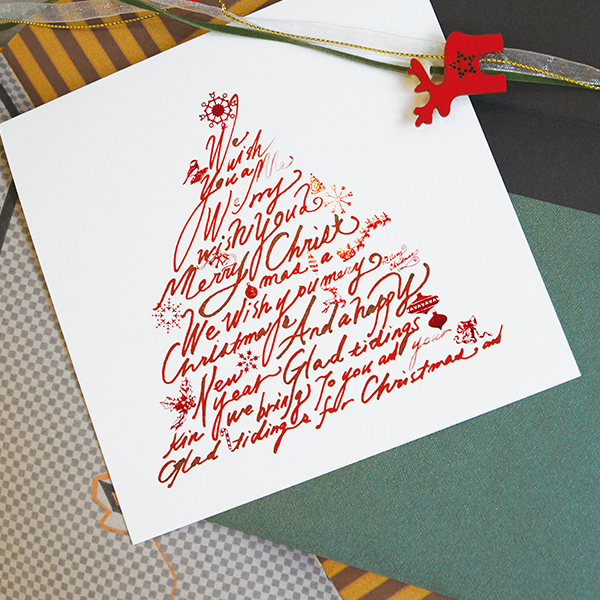 We
wish
You a Me
We rry
wish You a
Merry Christ
mas a
Merry Christmas
We Wish you mery
Christmas And a happy
New year Glad tidings
we bring To you and your
kin
Glad tidings for Christmas and